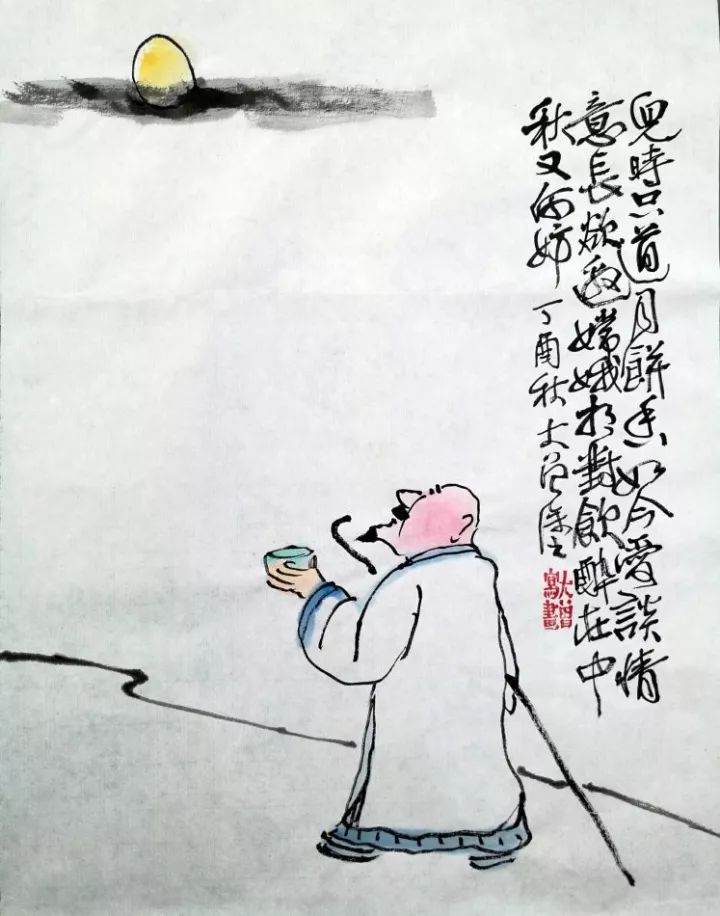 兒時只道月餅香如今愛談情
意長欲邀嫦娥相對飲醉在中
秋又何妨 丁酉秋大曾
大曾
寫畫